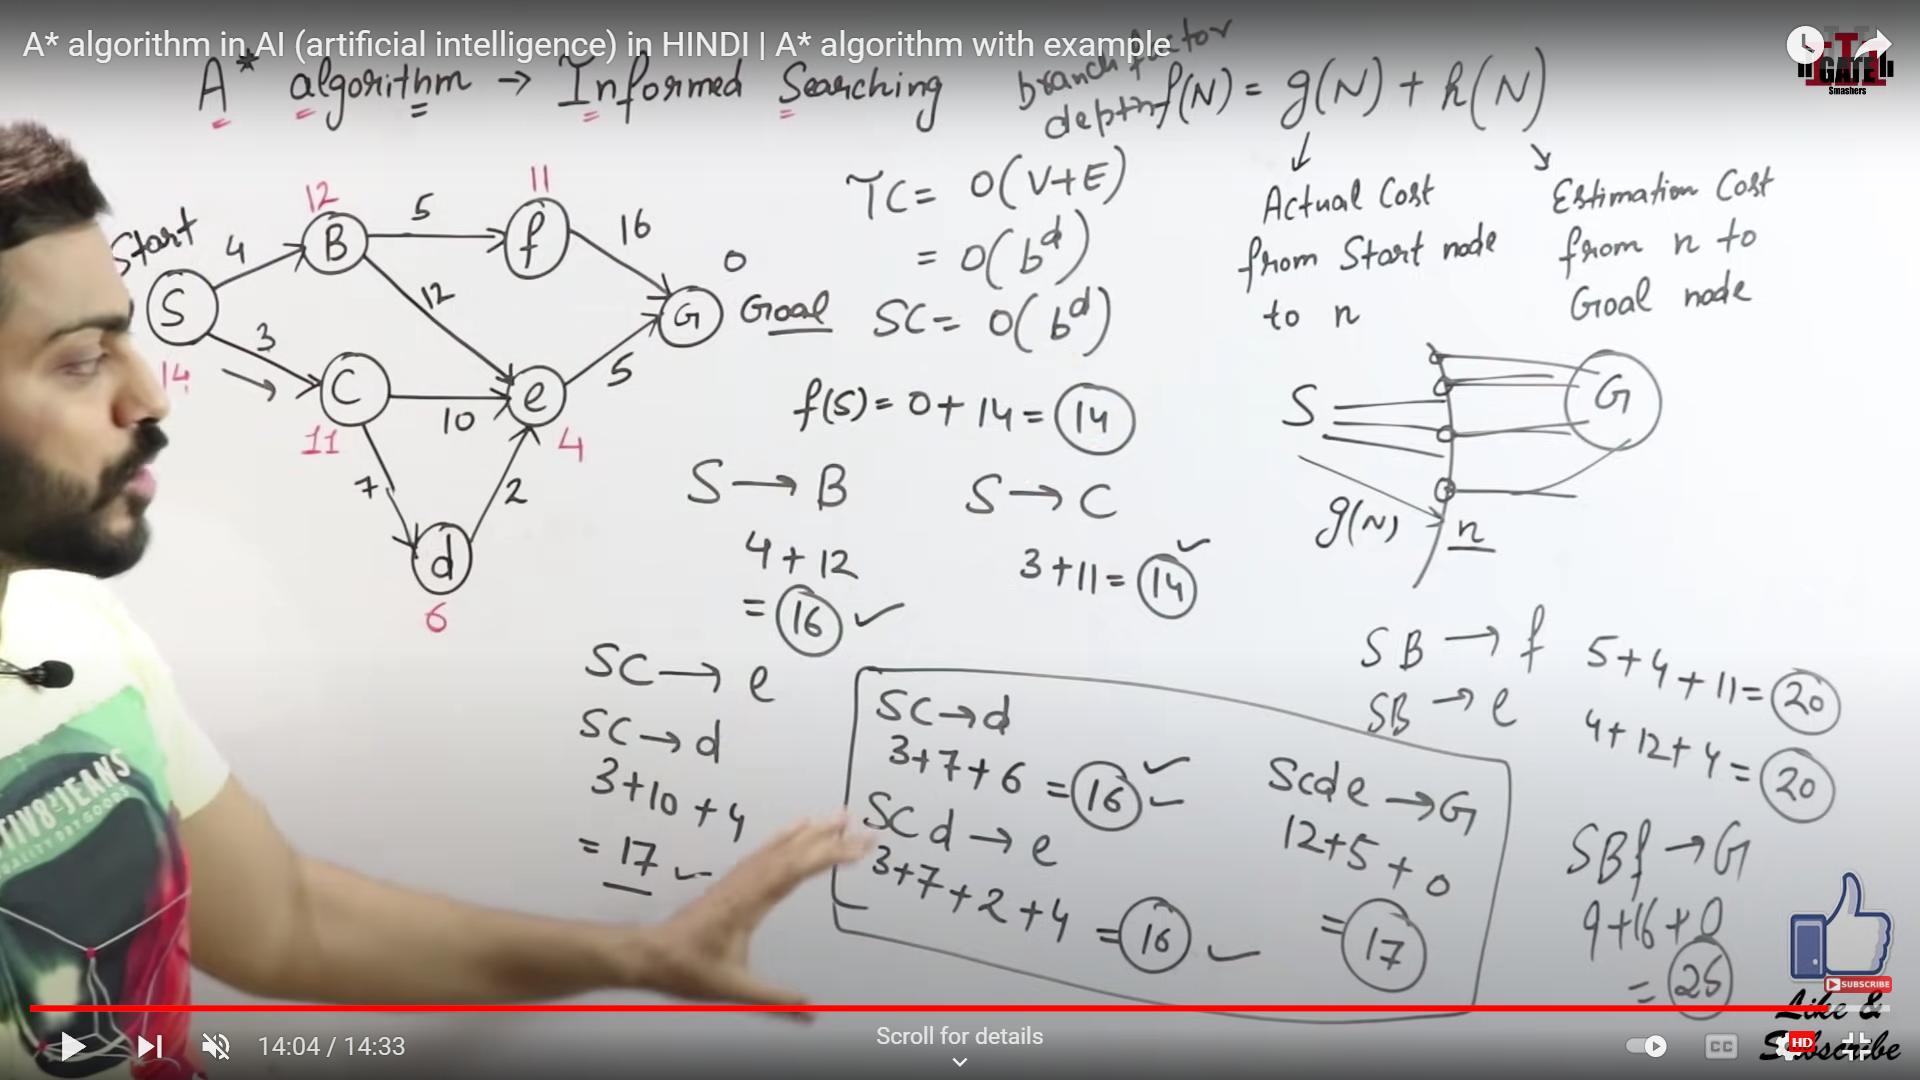 A* algorithm in AI (artificial intelligence) in HINDI | A* algorithm with example
GATE
Smashers
A* algorithm → Informed Searching
branch factor
depth
f(N) = g(N) + h(N)
Actual Cost
from Start node
to n
Estimation Cost
from n to
Goal node
TC = O(V+E)
= O(b^d)
SC = O(b^d)
Start
S
14
4
3
B
12
5
12
f
11
16
G
0
Goal
C
11
10
7
e
4
5
d
6
2
f(S) = 0 + 14 = 14
S → B
4 + 12
= 16 ✓
S → C
3+11 = 14 ✓
S
G
g(N)
n
SC → e
SC → d
3+10+4
= 17 ✓
SC → d
3+7+6 = 16 ✓ ✓
SCd → e
3+7+2+4 = 16 ✓
Scde → G
12+5+0
= 17
SB → f 5+4+11 = 20
SB → e 4+12+4 = 20
SBf → G
9+16+0
= 25
JEANS
SUBSCRIBE
Like &
Subscribe
14:04 / 14:33
Scroll for details
CC
HD